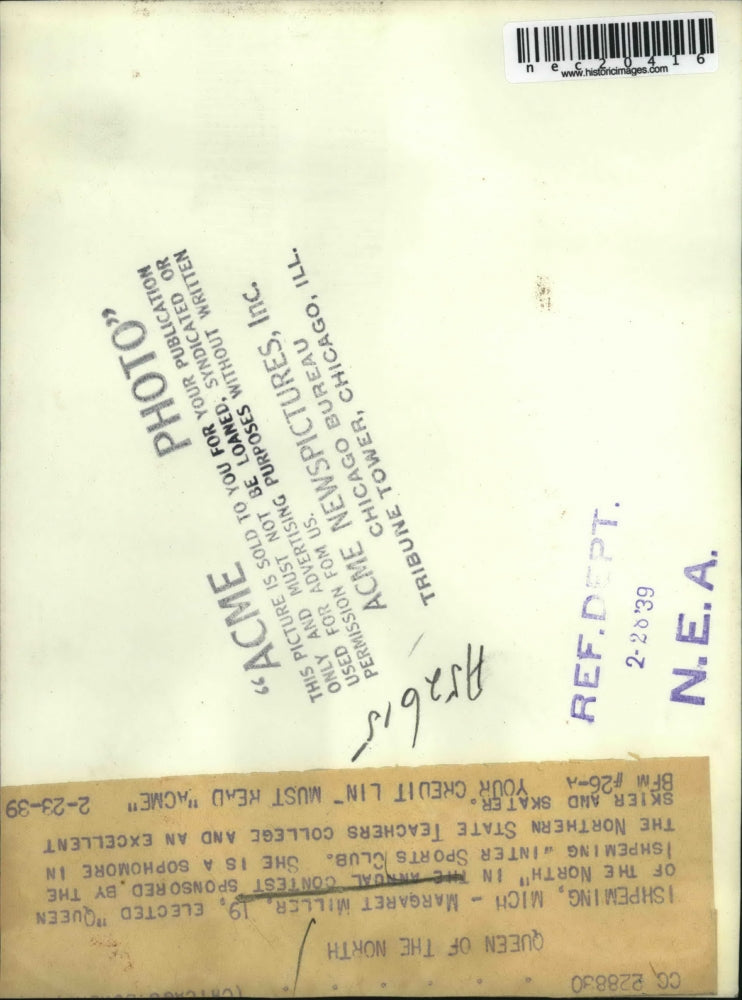 nec20416
www.historicimages.com
"ACME PHOTO"
THIS PICTURE IS SOLD TO YOU FOR YOUR PUBLICATION
ONLY AND MUST NOT BE LOANED, SYNDICATED OR
USED FOR ADVERTISING PURPOSES WITHOUT WRITTEN
PERMISSION FOM US.
ACME NEWSPICTURES, Inc.
CHICAGO BUREAU
TRIBUNE TOWER, CHICAGO, ILL.
REF. DEPT.
N.E.A.
CG 228830
QUEEN OF THE NORTH
ISHPEMING, MICH - MARGARET MILLER, 19, ELECTED "QUEEN
OF THE NORTH" IN THE ANNUAL CONTEST SPONSORED BY THE
ISHPEMING WINTER SPORTS CLUB. SHE IS A SOPHOMORE IN
THE NORTHERN STATE TEACHERS COLLEGE AND AN EXCELLENT
SKIER AND SKATER.
BFM #26-A YOUR CREDIT LIN MUST READ "ACME" 2-23-39